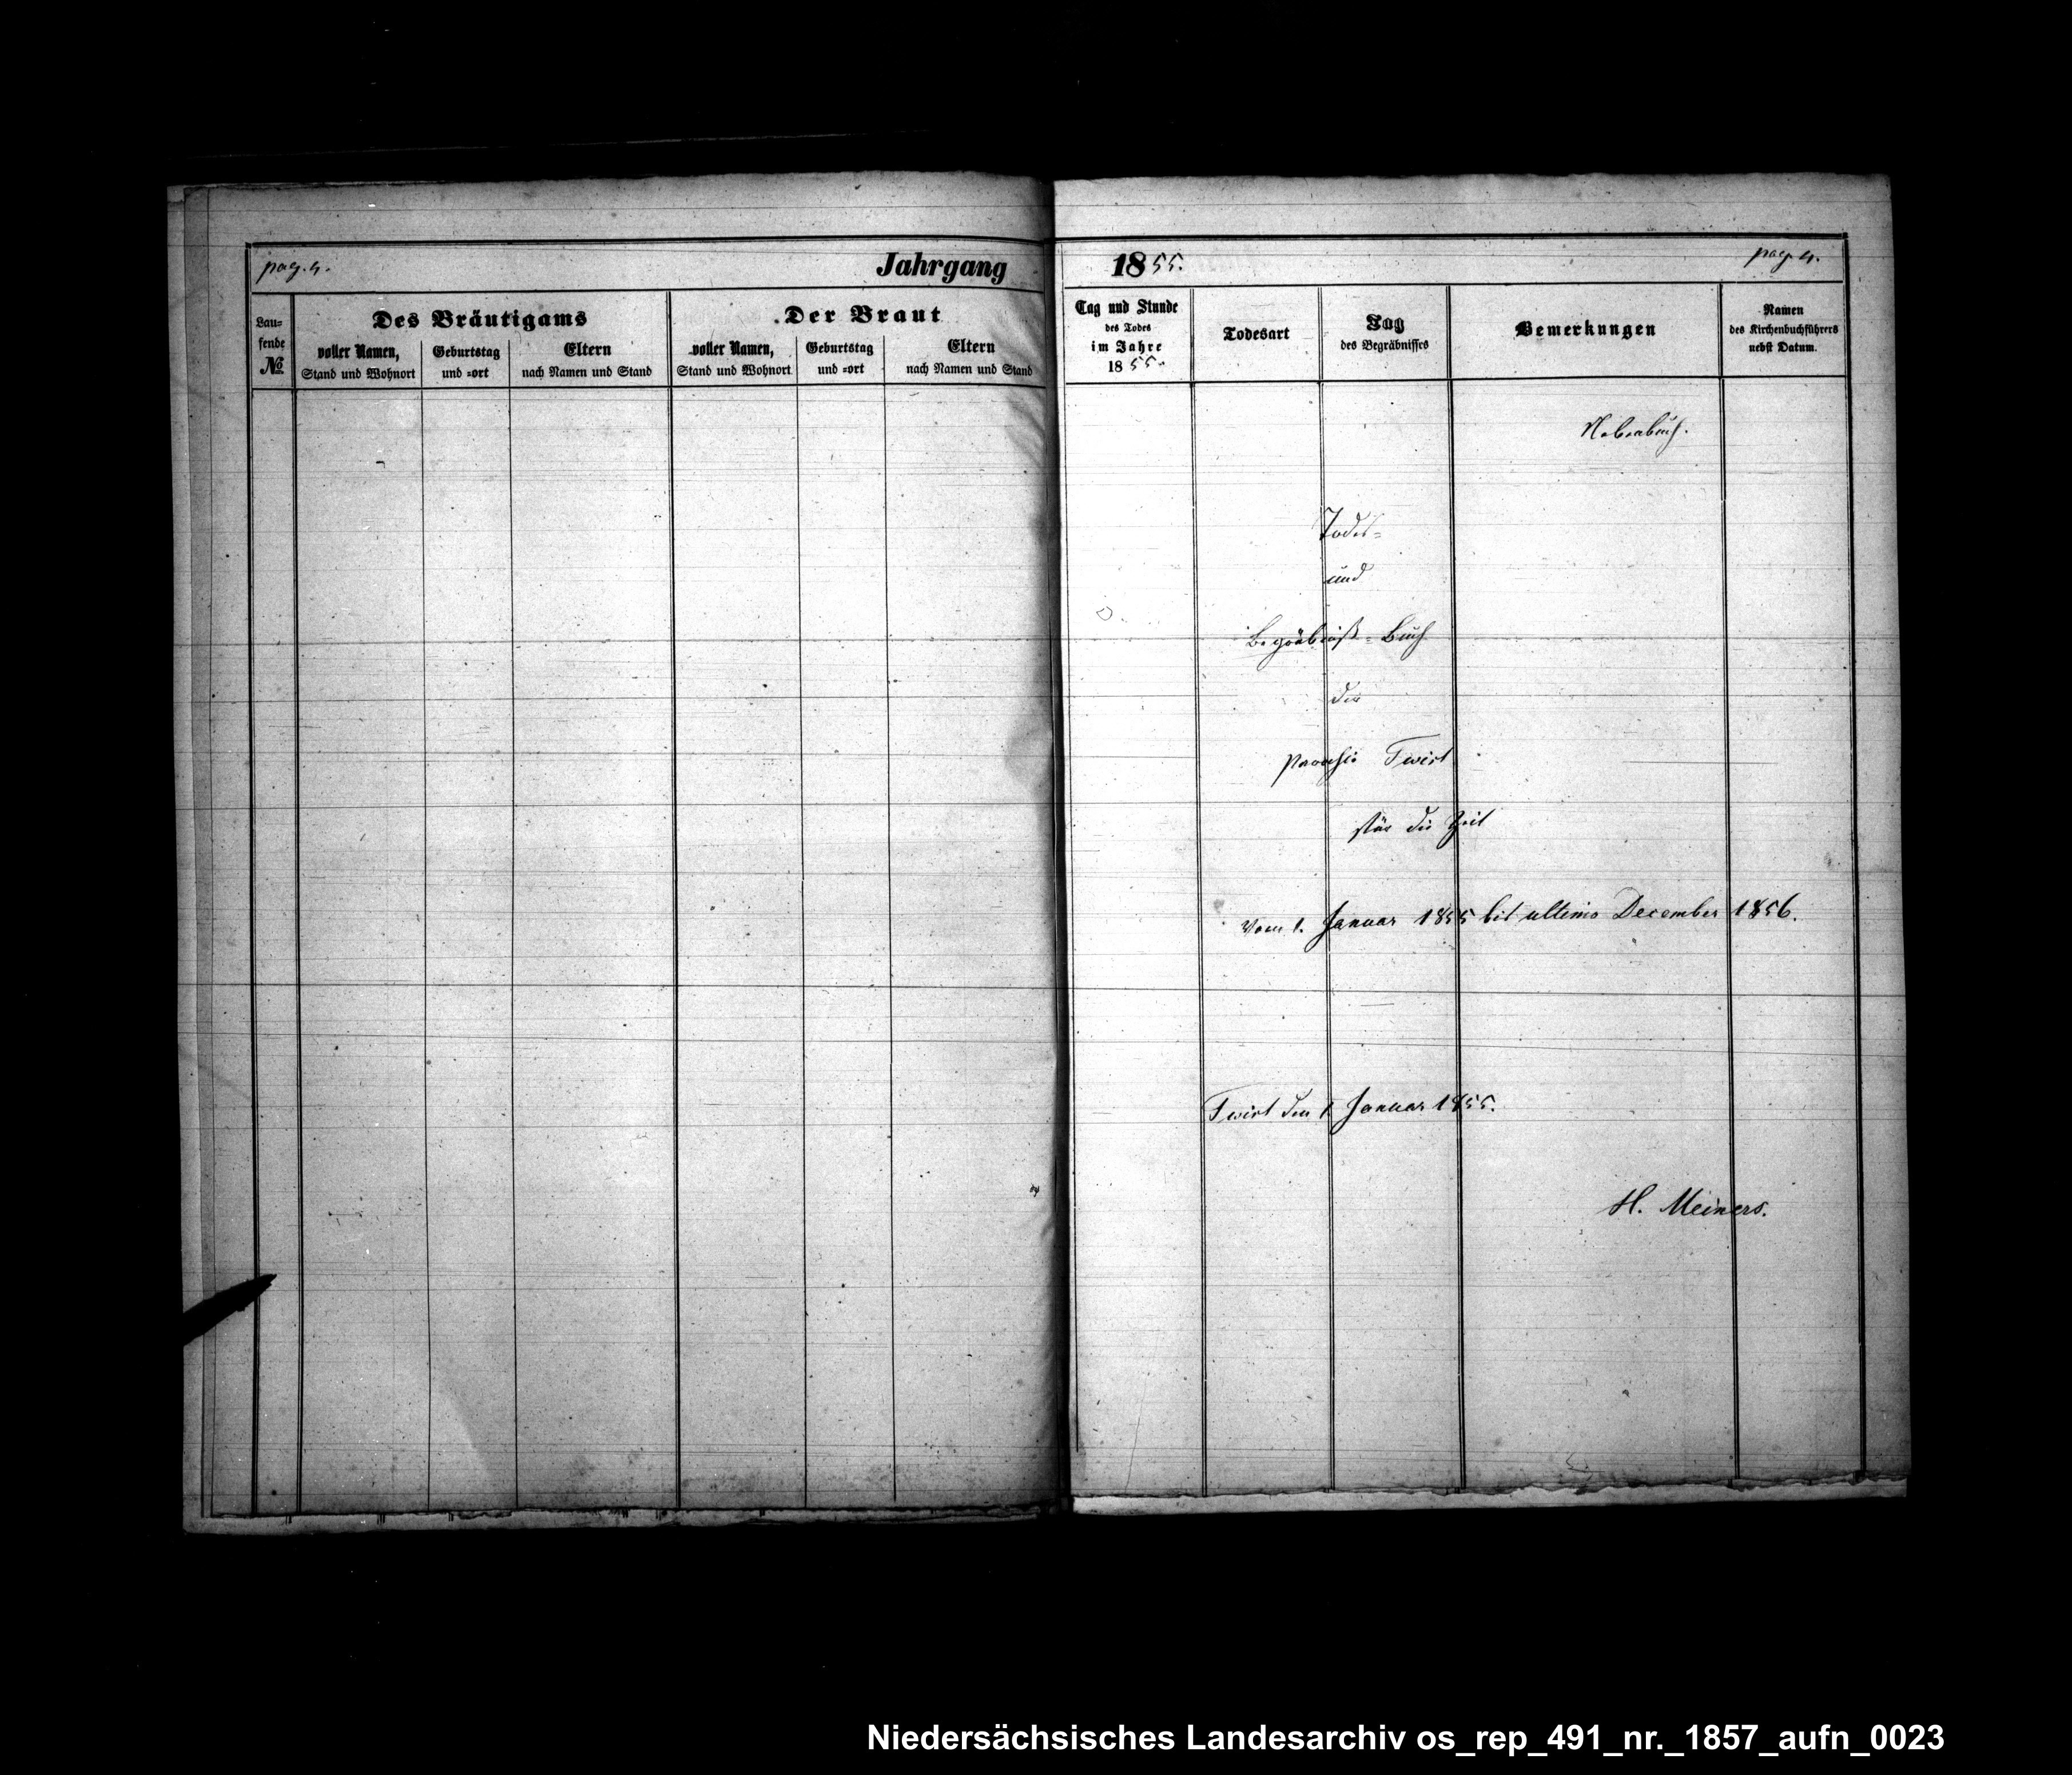 pag. 4.
Jahrgang
Lau-
fende
No
Des Bräutigams
voller Namen,
Stand und Wohnort
Geburtstag
und =ort
Eltern
nach Namen und Stand
Der Braut
voller Namen,
Stand und Wohnort
Geburtstag
und =ort
Eltern
nach Namen und Stand
1855.
pag. 4.
Tag und Stunde
des Todes
im Jahre
1855.
Todesart
Tag
des Begräbnisses
Bemerkungen
Namen
des Kirchenbuchführers
nebst Datum.
Nebenbuch.
Todes=
und
Begräbniß=Buch
der
Parochie Twist
für die Zeit
vom 1. Januar 1855 bis ultimo December 1856.
Twist den 1 Januar 1855.
H. Meiners.
Niedersächsisches Landesarchiv os_rep_491_nr._1857_aufn_0023